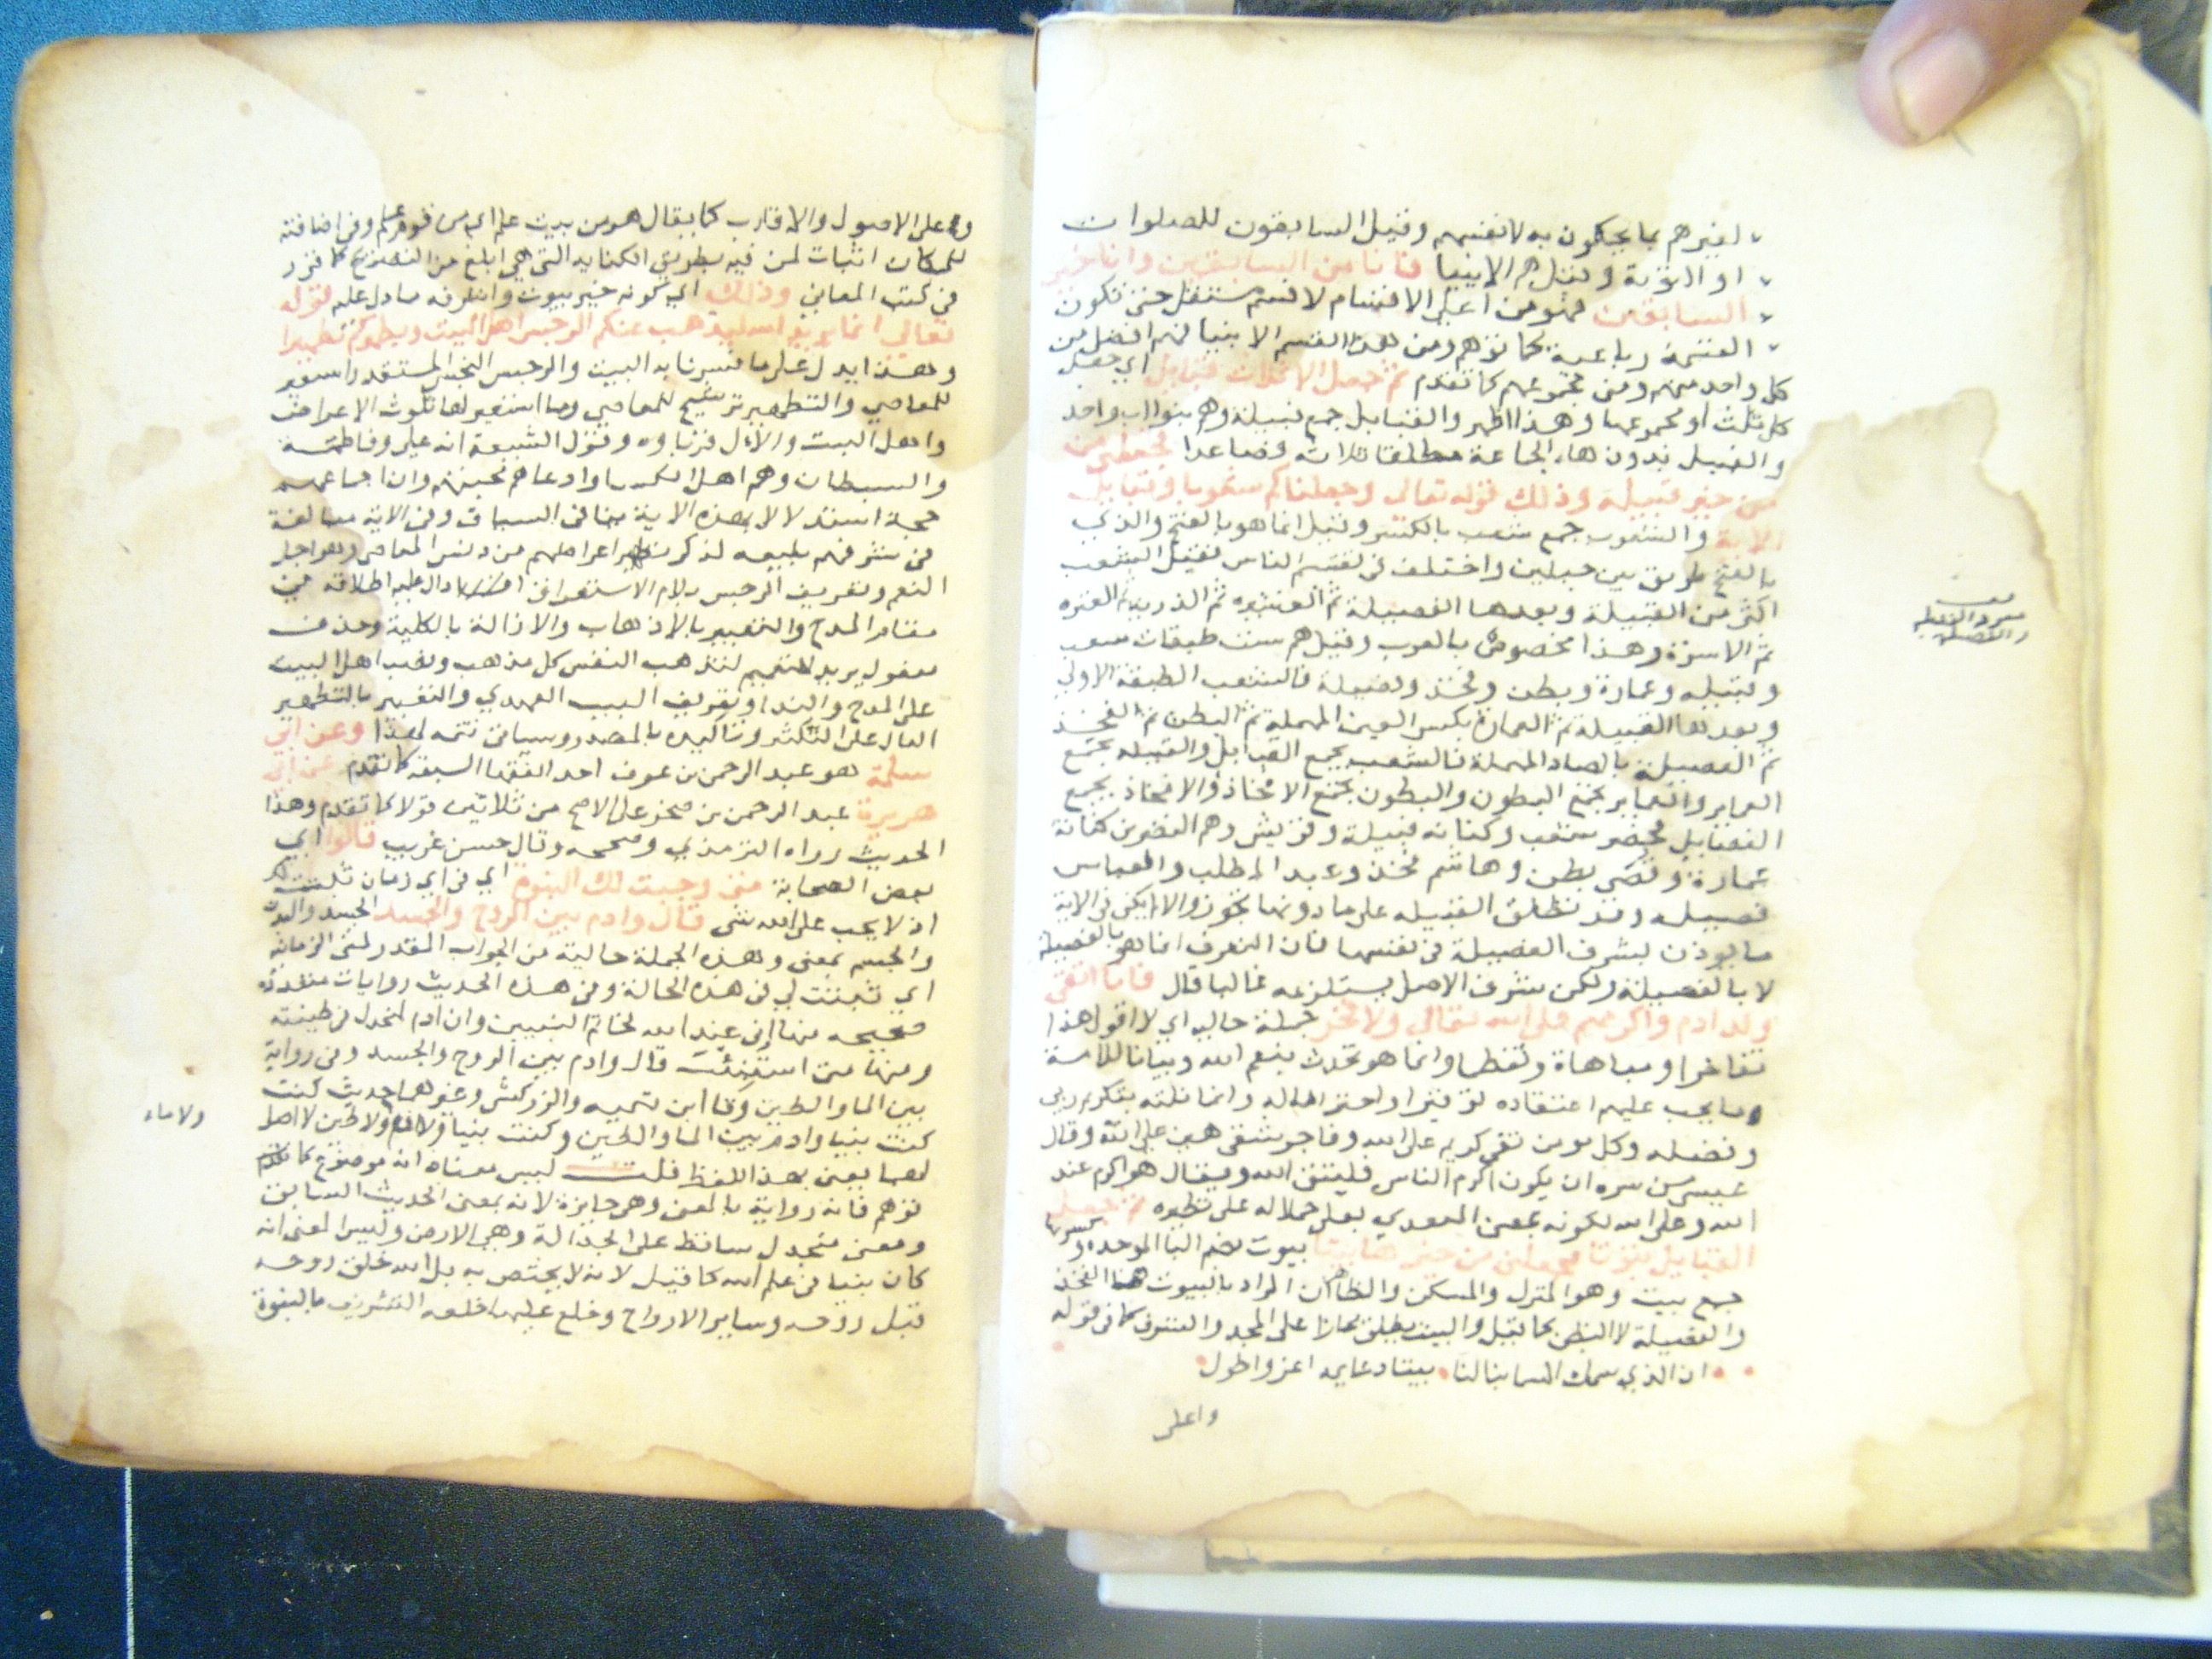 لغيرهم بما يحكمون به لانفسهم وقيل السابقون للصلوات
او التوبة وقيل هم الانبيا فانا من السابقين وانا خير
السابقين فهو من اعلى الاقسام لا قسم مستقل حتى تكون
القسمة رباعية كما توهم ومن هذا القسم الانبيا فهم افضل من
كل واحد منهم ومن مجموعهم كما تقدم ثم جعل الاثلاث قبايل اي جعل
كل ثلث او مجموعها وهذا اظهر والقبايل جمع قبيلة وهم بنوا اب واحد
والقبيل بدون هاء الجماعة مطلقا ثلاثة فصاعدا فجعلني من
من خير قبيلة وذلك قوله تعالى وجعلناكم شعوبا وقبايل
الاية والشعوب جمع شعب بالكسر وقيل انما هو بالفتح والذي
بالفتح طريق بين جبلين واختلف في تقسيم الناس فقيل الشعب
اكثر من القبيلة وبعدها الفصيلة ثم العشيرة ثم الذرية ثم العترة
ثم الاسرة وهذا مخصوص بالعرب وقيل هم ست طبقات شعب
وقبيلة وعمارة وبطن وفخذ وفصيلة فالشعب الطبقة الاولى
وبعدها القبيلة ثم العمارة بكسر العين المهملة ثم البطن ثم الفخذ
ثم الفصيلة بالصاد المهملة فالشعب يجمع القبايل والقبيلة تجمع
العماير والعماير تجمع البطون والبطون تجمع الافخاذ والافخاذ تجمع
الفصايل فمضر شعب وكنانه قبيلة وقريش وهم النضر بن كنانة
عمارة وقصي بطن وهاشم فخذ وعبد المطلب والعباس
فصيلة وقد تطلق القبيله على ما دونها تجوزا والا لم يكن في الاية
ما يوذن لبشرف الفصيلة في نفسها فان التعرف انما هو بالفصيلة
لا بالفصيلة ولكن شرف الاصل يستلزمه غالبا قال فانا اتقى
ولد ادم واكرمهم على الله تعالى ولا فخر جملة حالية اي لا اقول هذا
تفاخرا ومباهاة وتعظما وانما هو تحدث بنعم الله وبيانا للامة
ما يجب عليهم اعتقاده توقيرا واحتراما له وانما نلته بتكريم ربي
وفضله وكل مومن تقي كريم على الله وفاجر شقي هين على الله وقال
عيسى من سره ان يكون اكرم الناس فليتق الله ويقال هو اكرم عند
الله وعلى الله لكونه بمعنى المتعدي بعلى حملا له على نظيره ثم جعل
القبايل بيوتا فجعلني من خيرها بيتا بيوت بضم البا الموحدة وكسرها
جمع بيت وهو المنزل والمسكن والظاهر ان المراد بالبيوت هنا الفخذ
والفصيلة لا البطن كما قيل والبيت يطلق مجازا على المجد والشرف كما في قوله
ان الذي سمك السما بنا لنا بيتا دعايمه اعز واطول
وعلى
وعلى الاصول والاقارب كما يقال هو من بيت علم اي من قوم علم وفي اضافته
للمكان اثبات لمن فيه بطريق الكناية التي هي ابلغ من التصريح كما قرر
في كتب المعاني وذلك اي كونه خير بيوت واشرفه ما دل عليه قوله
تعالى انما يريد الله ليذهب عنكم الرجس اهل البيت ويطهركم تطهيرا
وهذا يدل على ما فسرنا به البيت والرجس النجس المستقذر استعير
للمعاصي والتطهير ترشيح للمعاصي وما استعير لها تلوث الاعراض
واهل البيت والآل قرناوه وقول الشيعة انه علي وفاطمة
والسبطان وهم اهل الكسا وادعاهم تخصيصه وان اجماعهم
حجة استدلالا بهذه الاية ينافي السياق وفي الاية مبالغة
في شرفهم بليغه لذكر تطهير اعراضهم من دنس المعاصي وهو اجل
النعم وتعريف الرجس بلام الاستغراق دال عليه اطلاقه في
مقام المدح والتعبير بالاذهاب والازالة بالكلية وحذف
مفعول يريد للتعميم لتذهب النفس كل مذهب ونصب اهل البيت
على المدح والندا وتعريف البيت العهدي والتعبير بالتطهير
الدال على التكثر وتاكيده بالمصدر وسياتي تتمة لهذا وعن ابي
سلمة هو عبد الرحمن بن عوف احد الفقها السبعة كما تقدم عن ابي
هريرة عبد الرحمن بن صخر على الاصح من ثلاثين قولا كما تقدم وهذا
الحديث رواه الترمذي وصححه وقال حسن غريب قالوا اي
بعض الصحابة متى وجبت لك النبوة اي في اي زمان ثبتت لك
اذ لا يجب على الله شي قال وادم بين الروح والجسد الجسد والبدن
والجسم بمعنى وهذه الجملة حالية من الجواب المقدر لمتى الزمانية
اي ثبتت لي في هذه الحالة وفي هذه الحديث روايات متعددة
صحيحه منها اني عند الله لخاتم النبيين وان ادم لمنجدل في طينته
ومنها متى استنبئت قال وادم بين الروح والجسد وفي رواية
بين الما والطين وقا ابن تيميه والزركشي وغيرهما حديث كنت
كنت نبيا وادم بين الما والطين وكنت نبيا ولا ادم ولا طين لا اصل
ولا ماء
لهما يعني بهذا اللفظ قلت ليس معناه انه موضوع كما
توهم فانه رواية بالمعنى وهي جايزة لانه بمعنى الحديث السابق
ومعنى منجدل ساقط على الجدالة وهي الارض وليس المعنى انه
كان نبيا في علم الله كما قيل لانه لا يختص به بل الله خلق روحه
قبل روحه وساير الارواح وخلع عليها خلعه التشريف بالنبوة